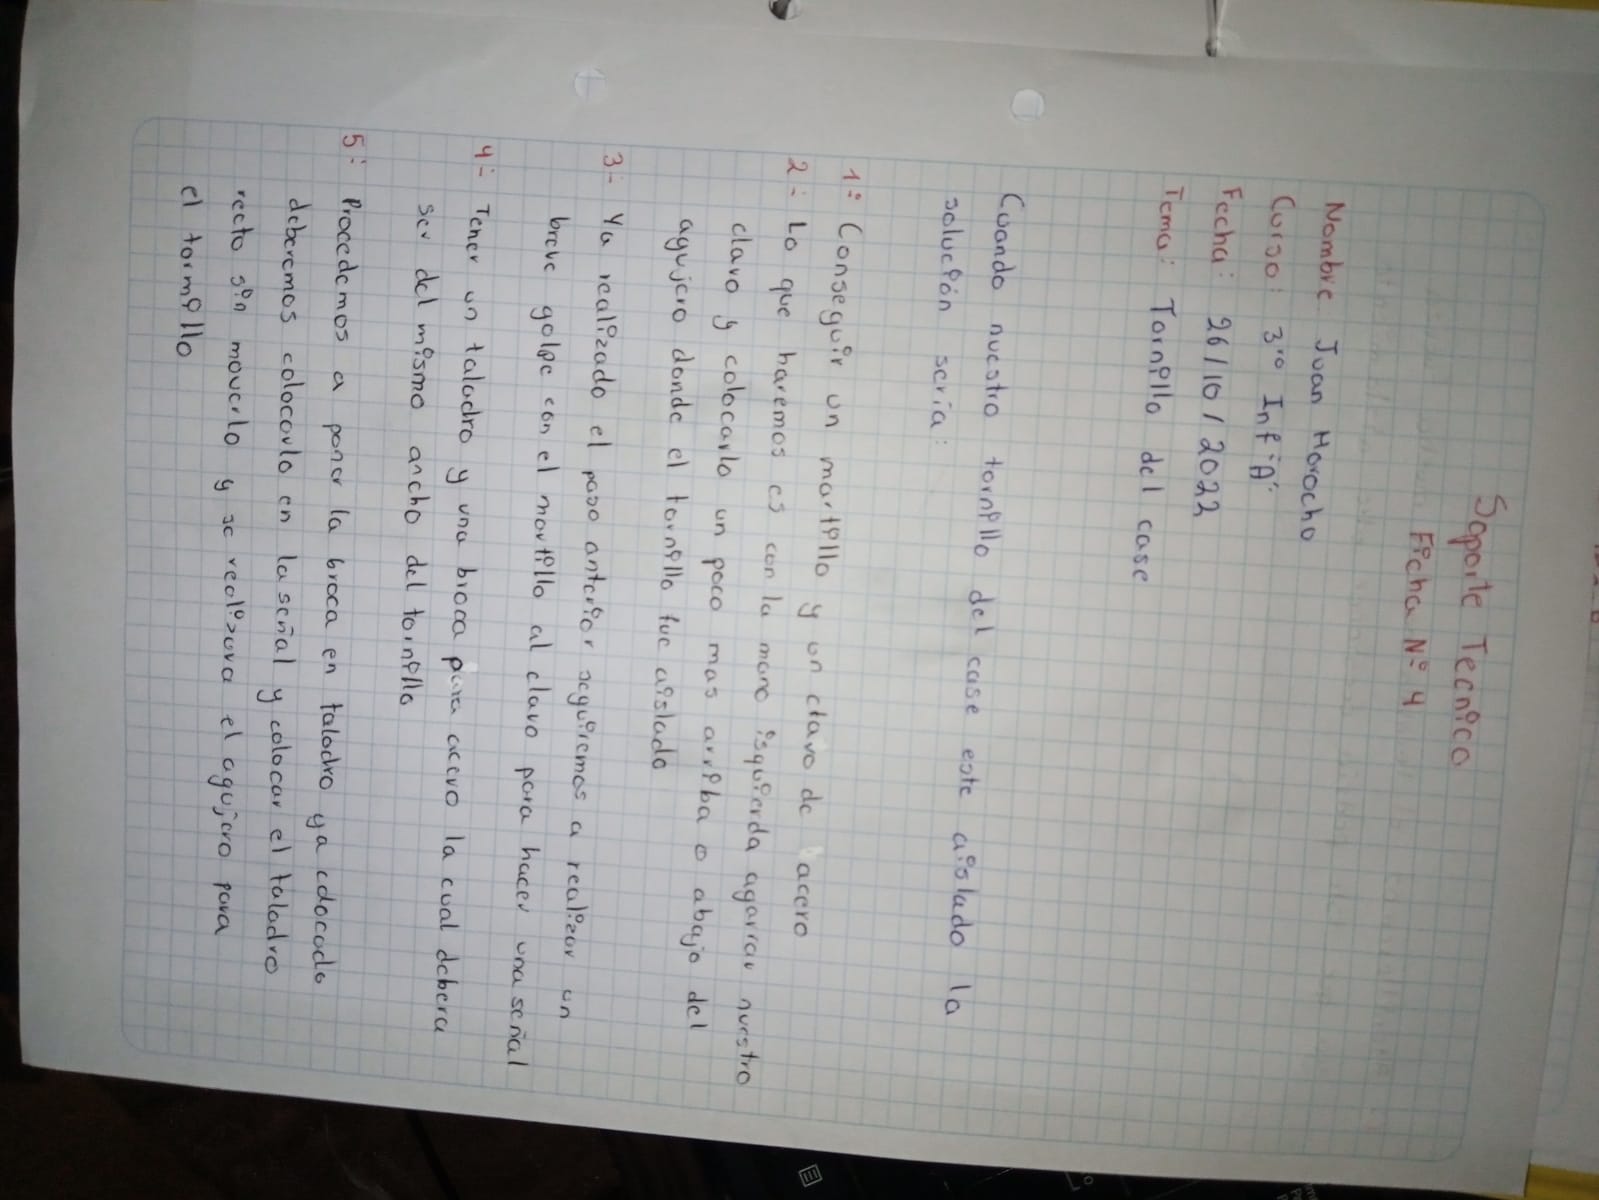 Soporte Tecnico
Ficha Nº 4
Nombre Juan Morocho
Curso: 3ro Inf "A"
Fecha: 26/10/2022
Tema: Tornillo del case
Cuando nuestro tornillo del case este aislado la
solución seria:
1- Conseguir un martillo y un clavo de acero
2- Lo que haremos es con la mano isquierda agarrar nuestro
clavo y colocarlo un poco mas arriba o abajo del
agujero donde el tornillo fue aislado
3- Ya realizado el paso anterior seguiremos a realizar un
breve golpe con el martillo al clavo para hacer una señal
4- Tener un taladro y una broca para acero la cual debera
ser del mismo ancho del tornillo
5- Procedemos a poner la broca en taladro ya colocado
deberemos colocarlo en la señal y colocar el taladro
recto sin moverlo y se realisara el agujero para
el tormillo